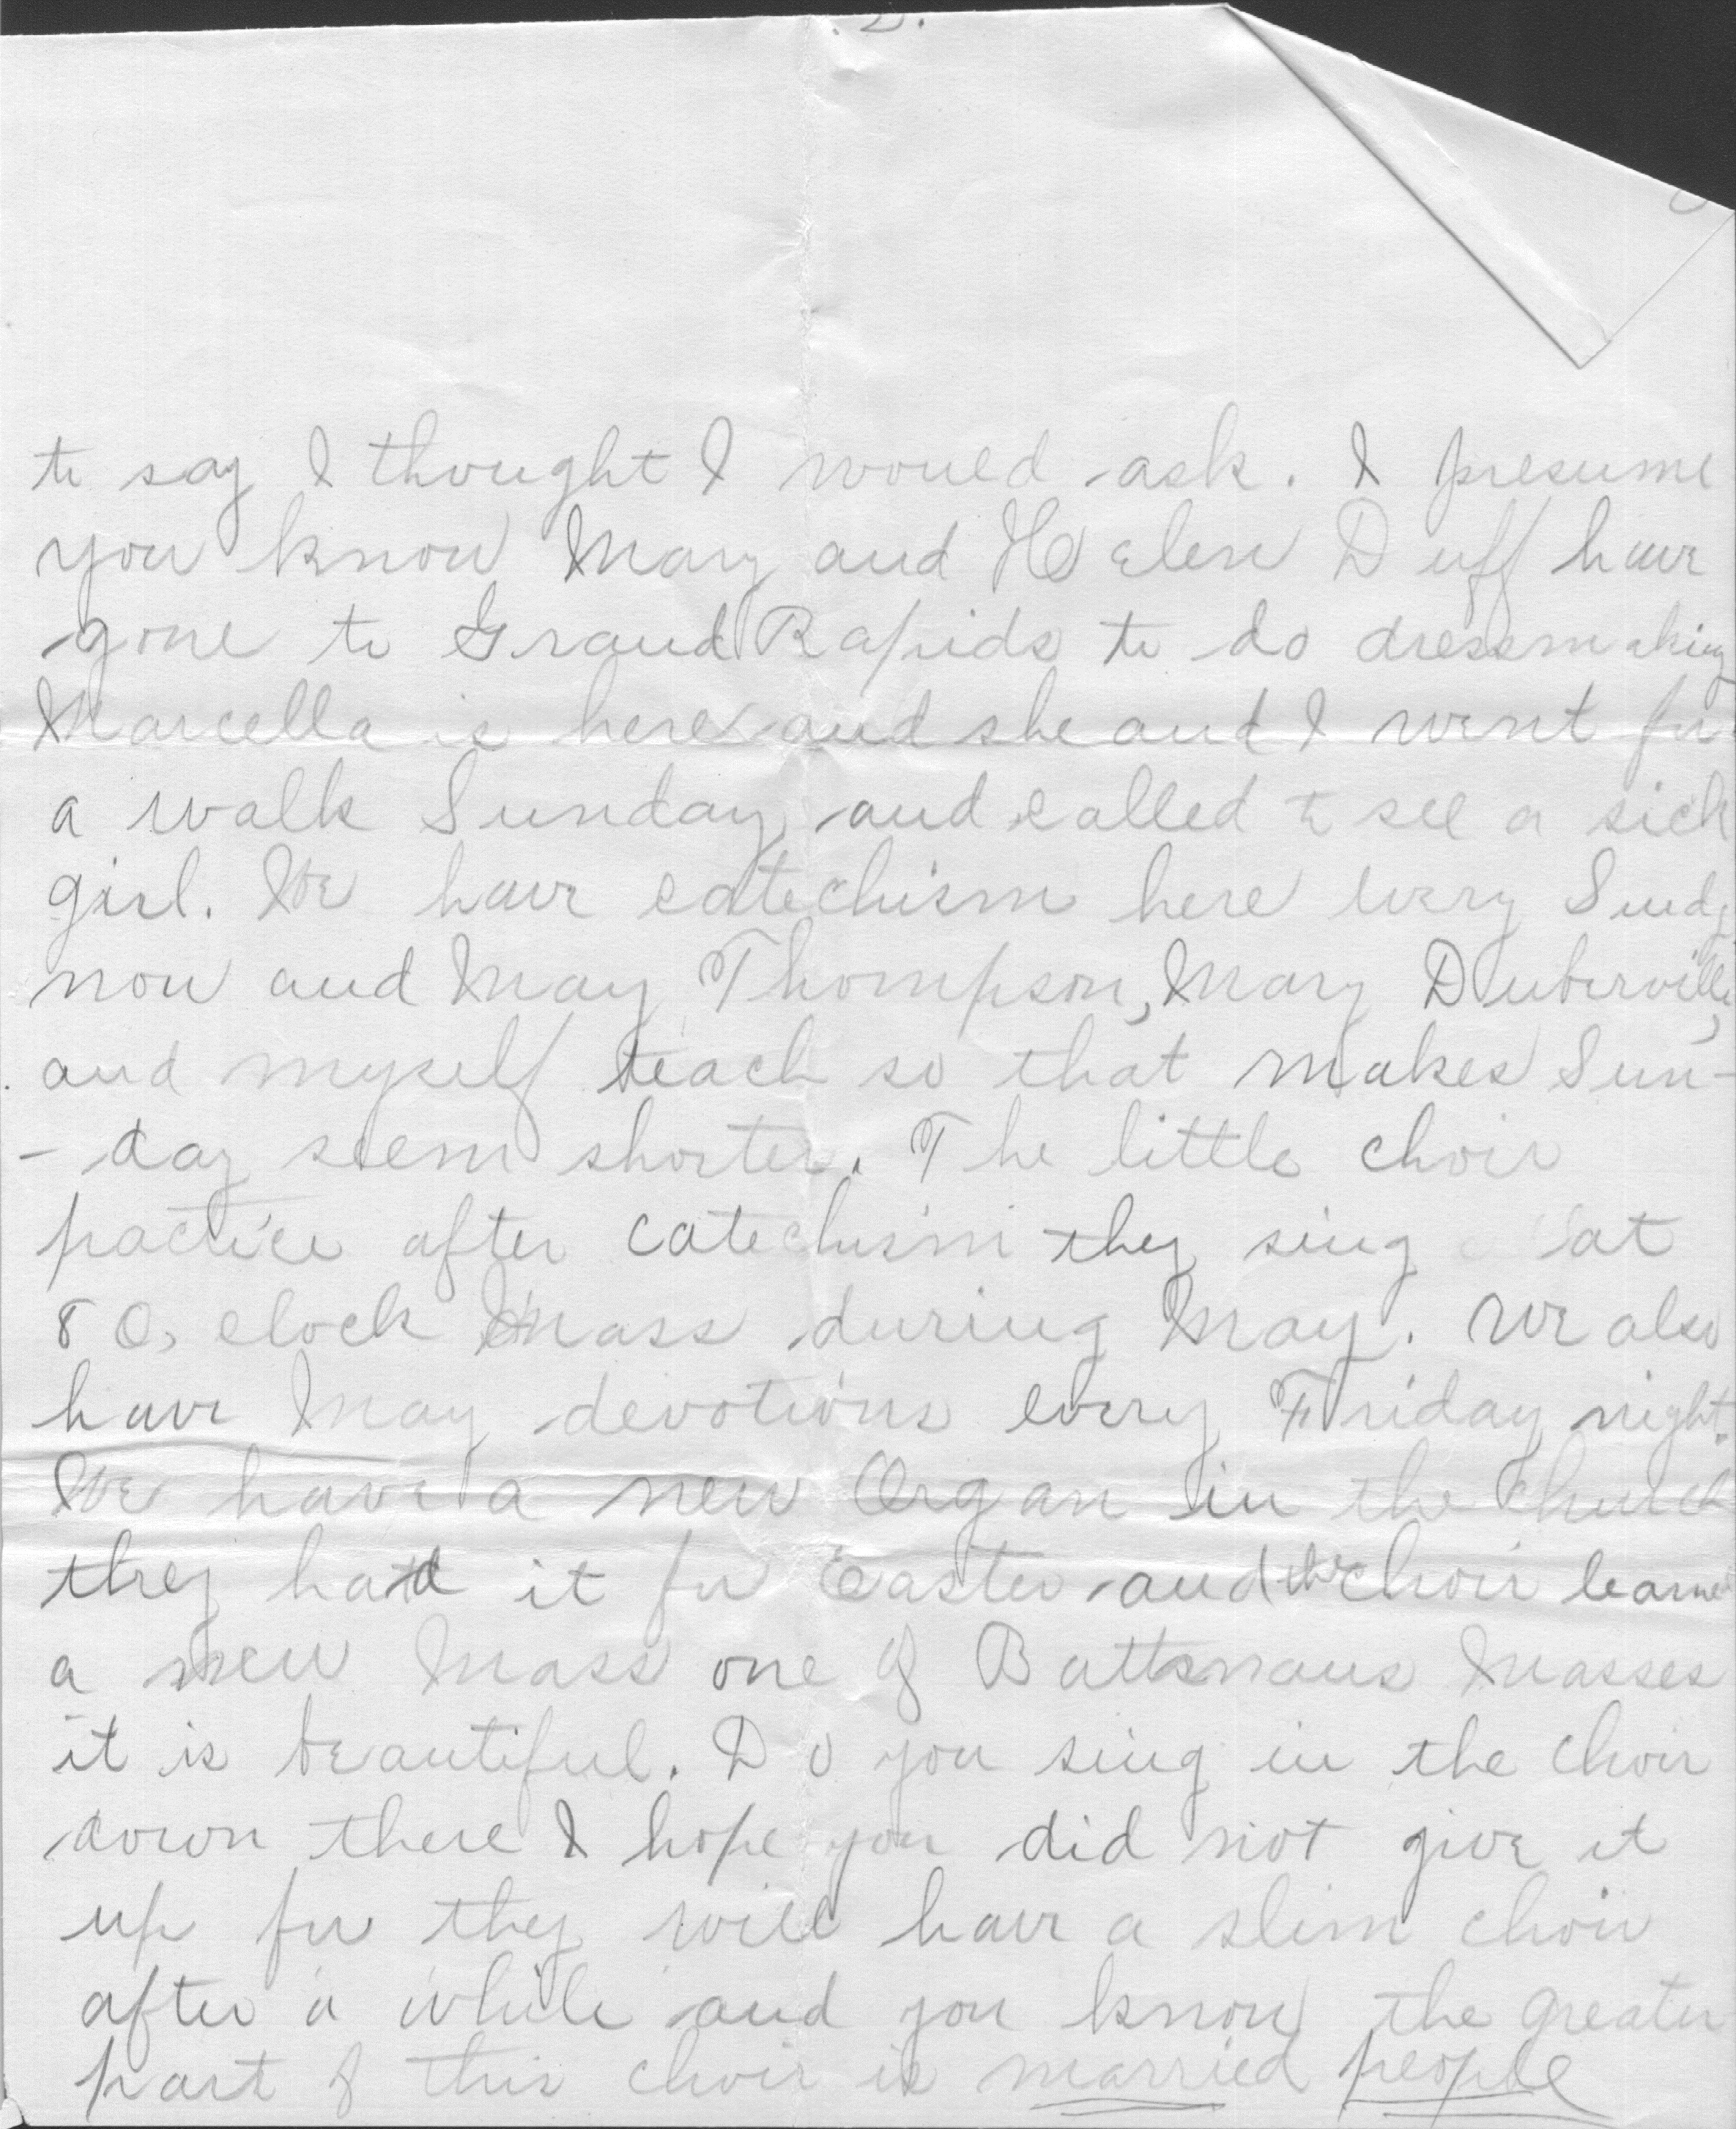 .2.
to say I thought I would ask. I presume
you know Mary and Helen Duff have
gone to Grand Rapids to do dressmaking
Marcella is here and she and I went for
a walk Sunday and called to see a sick
girl. We have catechism here every Sundy
now and May Thompson, Mary Duberville,
and myself teach so that makes Sun-
- day seem shorter. The little choir
practice after catechism they sing at
8 O, clock Mass during May. We also
have May devotions every Friday night.
We have a new Organ in the church
they had it for Easter and the choir learned
a new Mass one of Battmans Masses
it is beautiful. Do you sing in the choir
down there I hope you did not give it
up for they will have a slim choir
after a while and you know the greater
part of this choir is married people